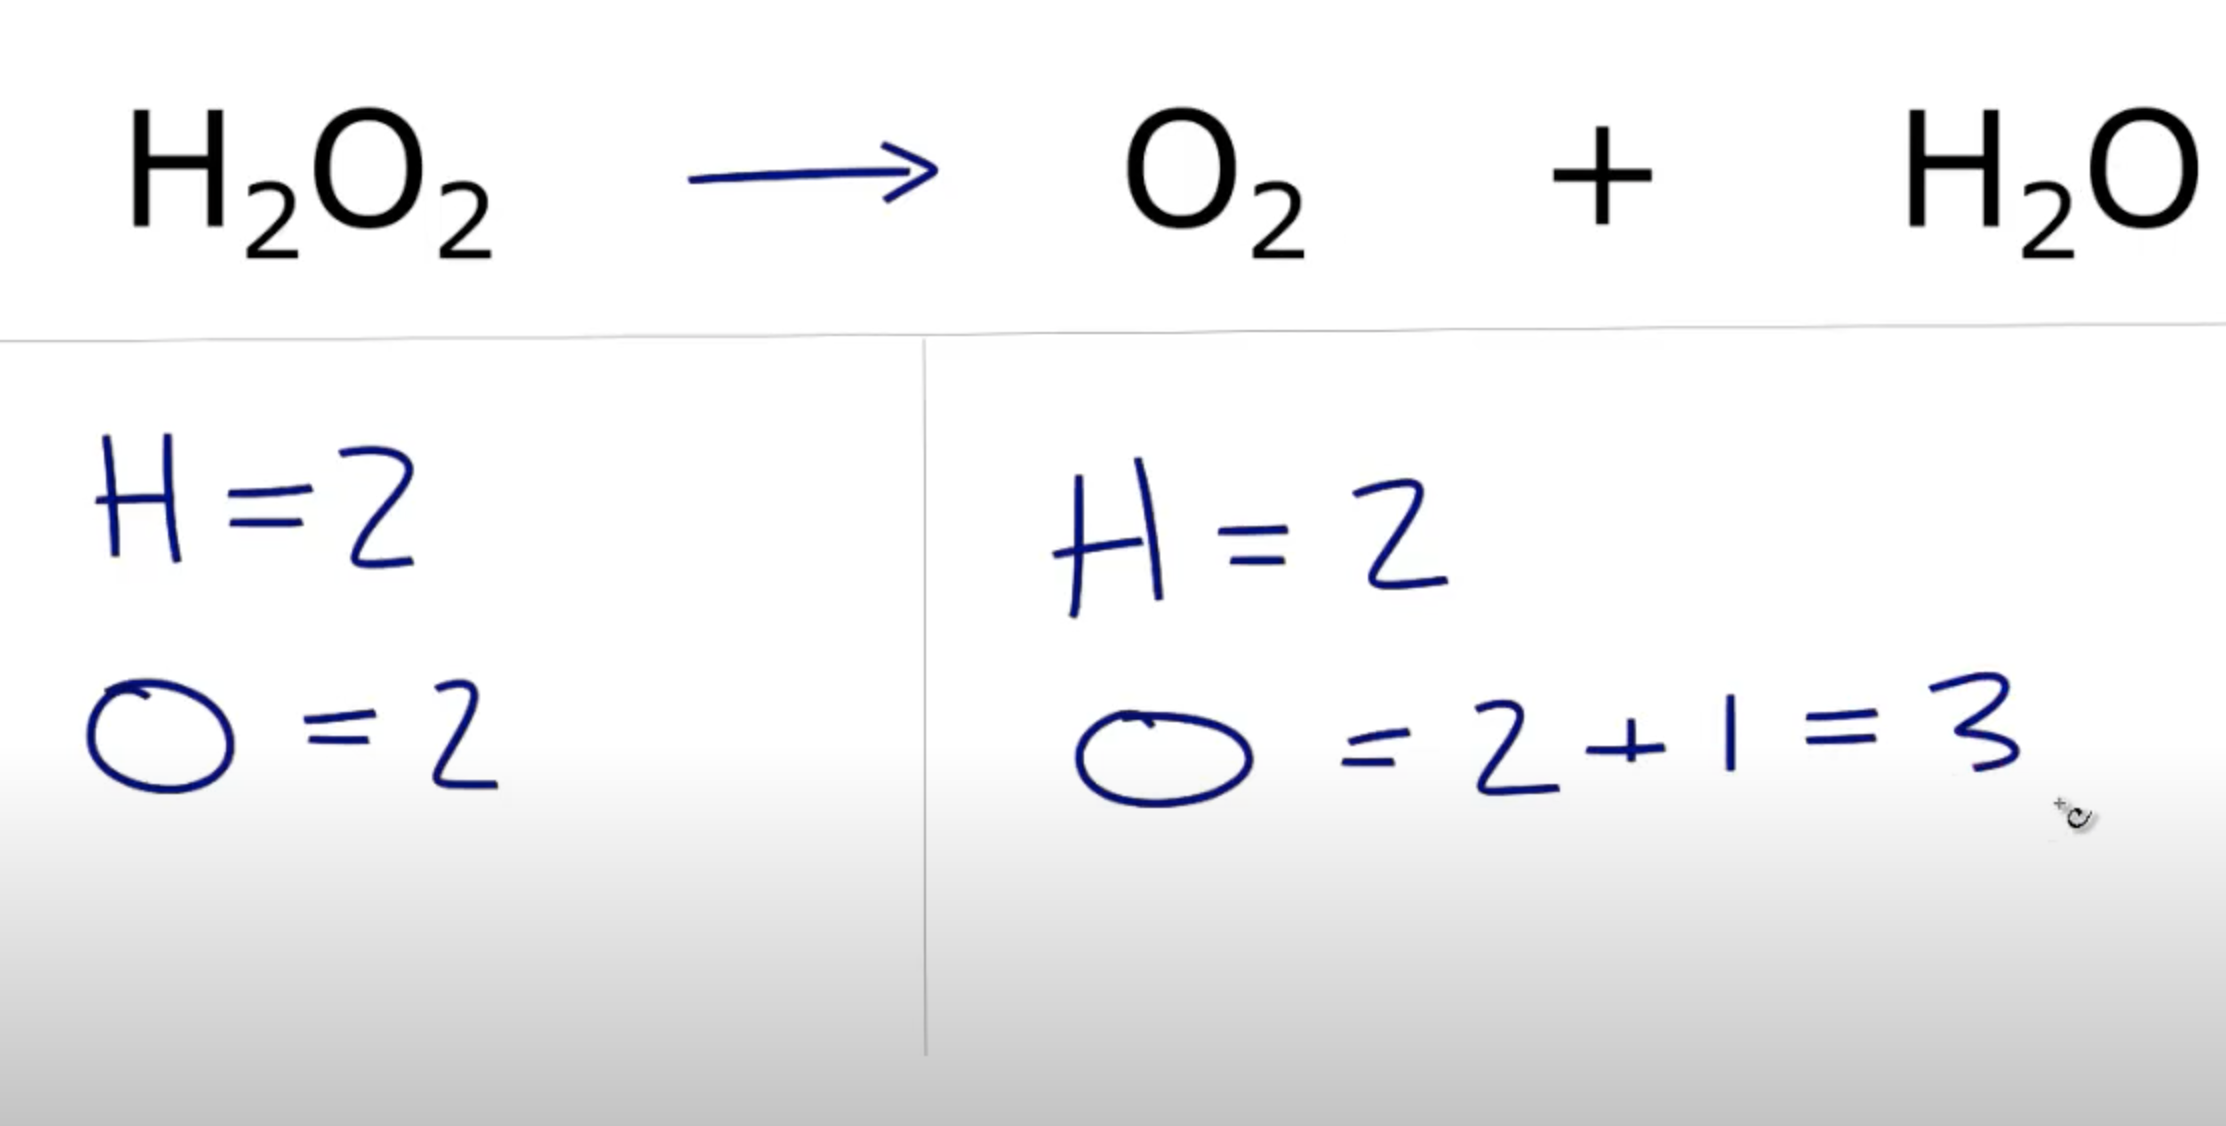 H₂O₂ → O₂ + H₂O
H = 2
O = 2
H = 2
O = 2 + 1 = 3